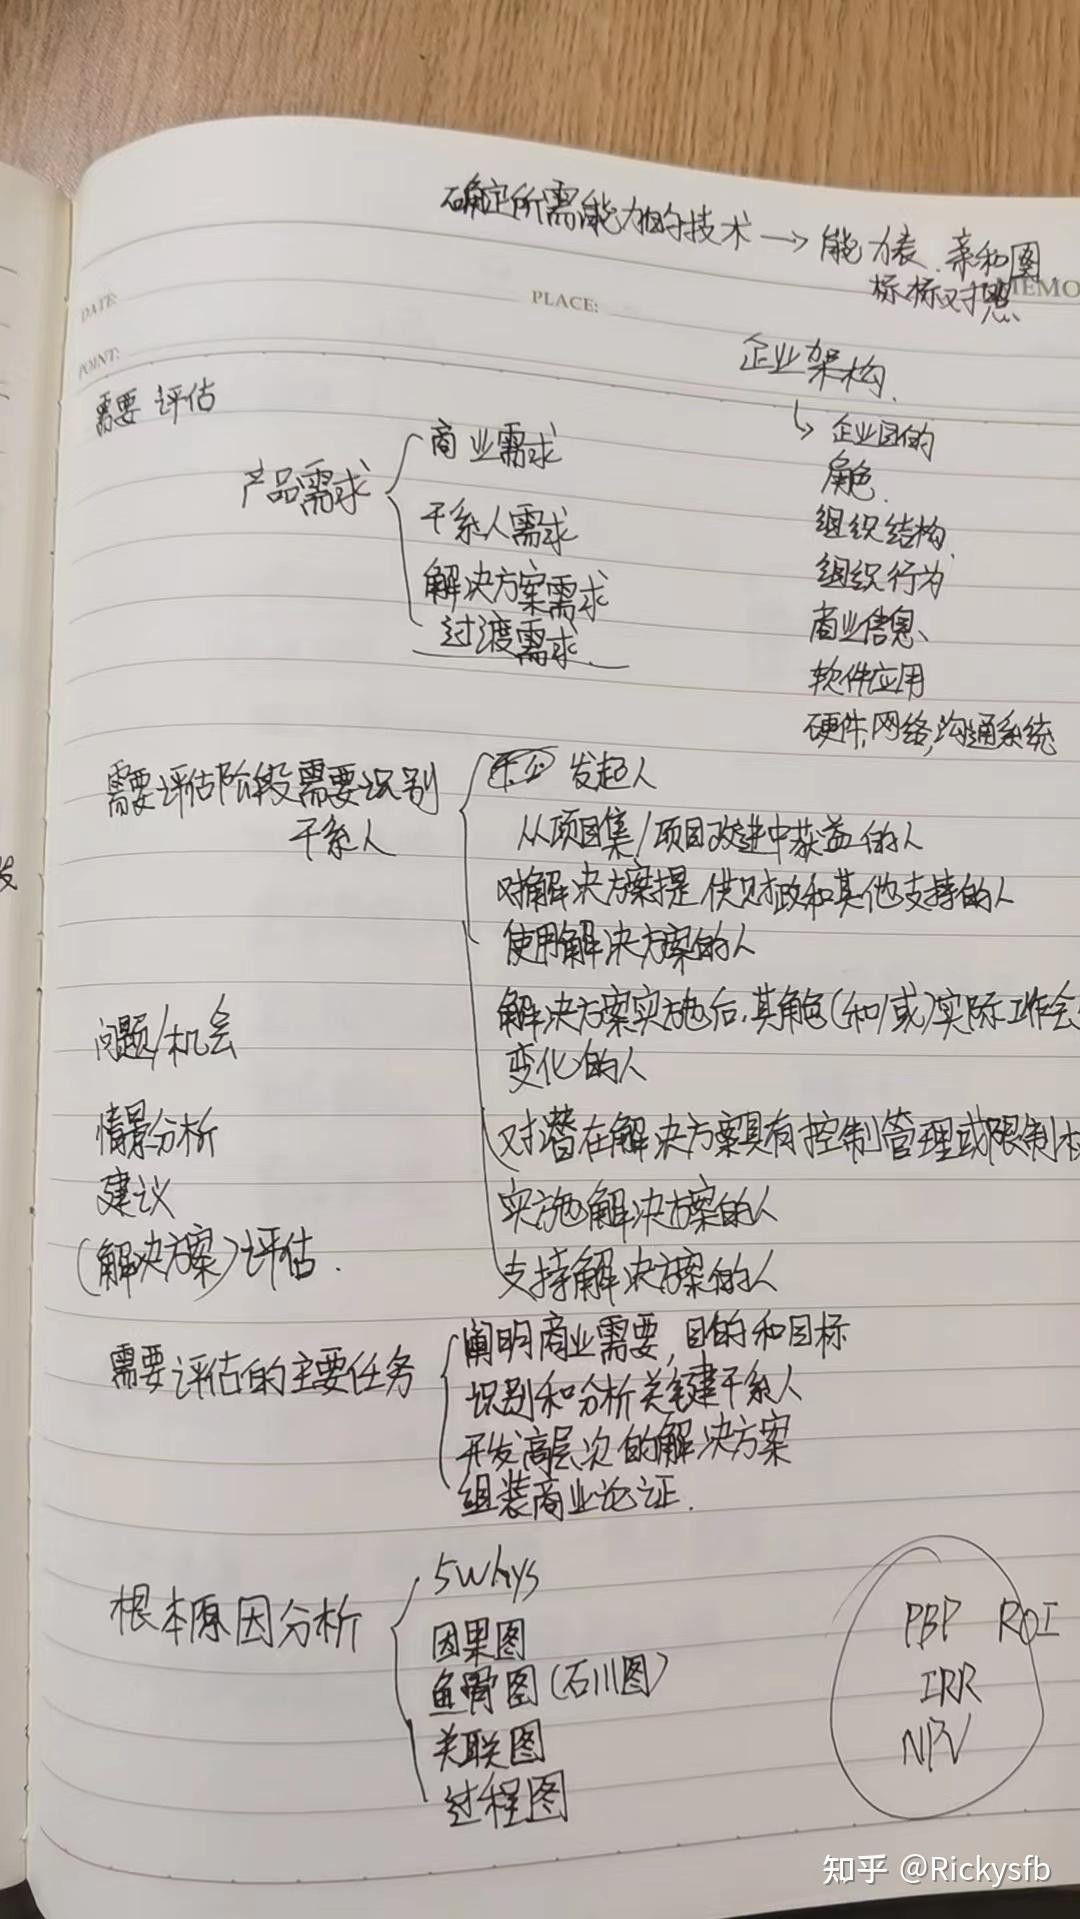 确定所需能力的技术→能力表.亲和图
标杆对照
MEMO
DATE:
PLACE:
POINT:
企业架构.
↳ 企业目的
角色.
组织结构
组织行为
商业信息、
软件应用
硬件,网络,沟通系统
需要评估
产品需求
商业需求
干系人需求
解决方案需求
过渡需求.
需要评估阶段需要识别
干系人
发起人
从项目集/项目改进中获益的人
对解决方案提供财政和其他支持的人
使用解决方案的人
解决方案实施后,其角色(和/或)实际工作会
变化的人
对潜在解决方案具有控制管理或限制
实施解决方案的人
支持解决方案的人
问题/机会
情景分析
建议
(解决方案)评估.
需要评估的主要任务
阐明商业需要,目的和目标
识别和分析关键干系人
开发高层次的解决方案
组装商业论证.
根本原因分析
5whys
因果图
鱼骨图(石川图)
关联图
过程图
PBP ROI
IRR
NPV
知乎 @Rickysfb